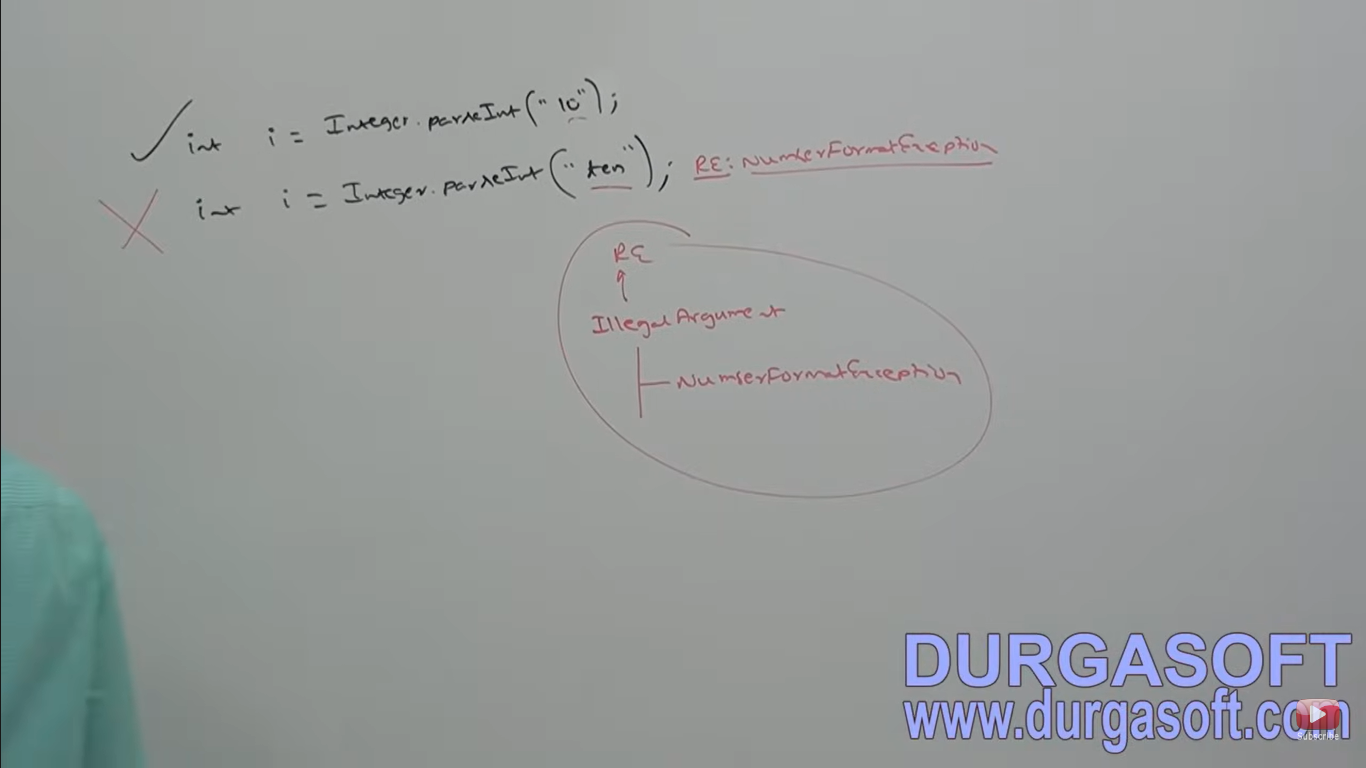 int i = Integer.parseInt("10");
int i = Integer.parseInt("ten"); RE: NumberFormatException
RE
IllegalArgument
NumberFormatException
DURGASOFT
www.durgasoft.com
Subscribe